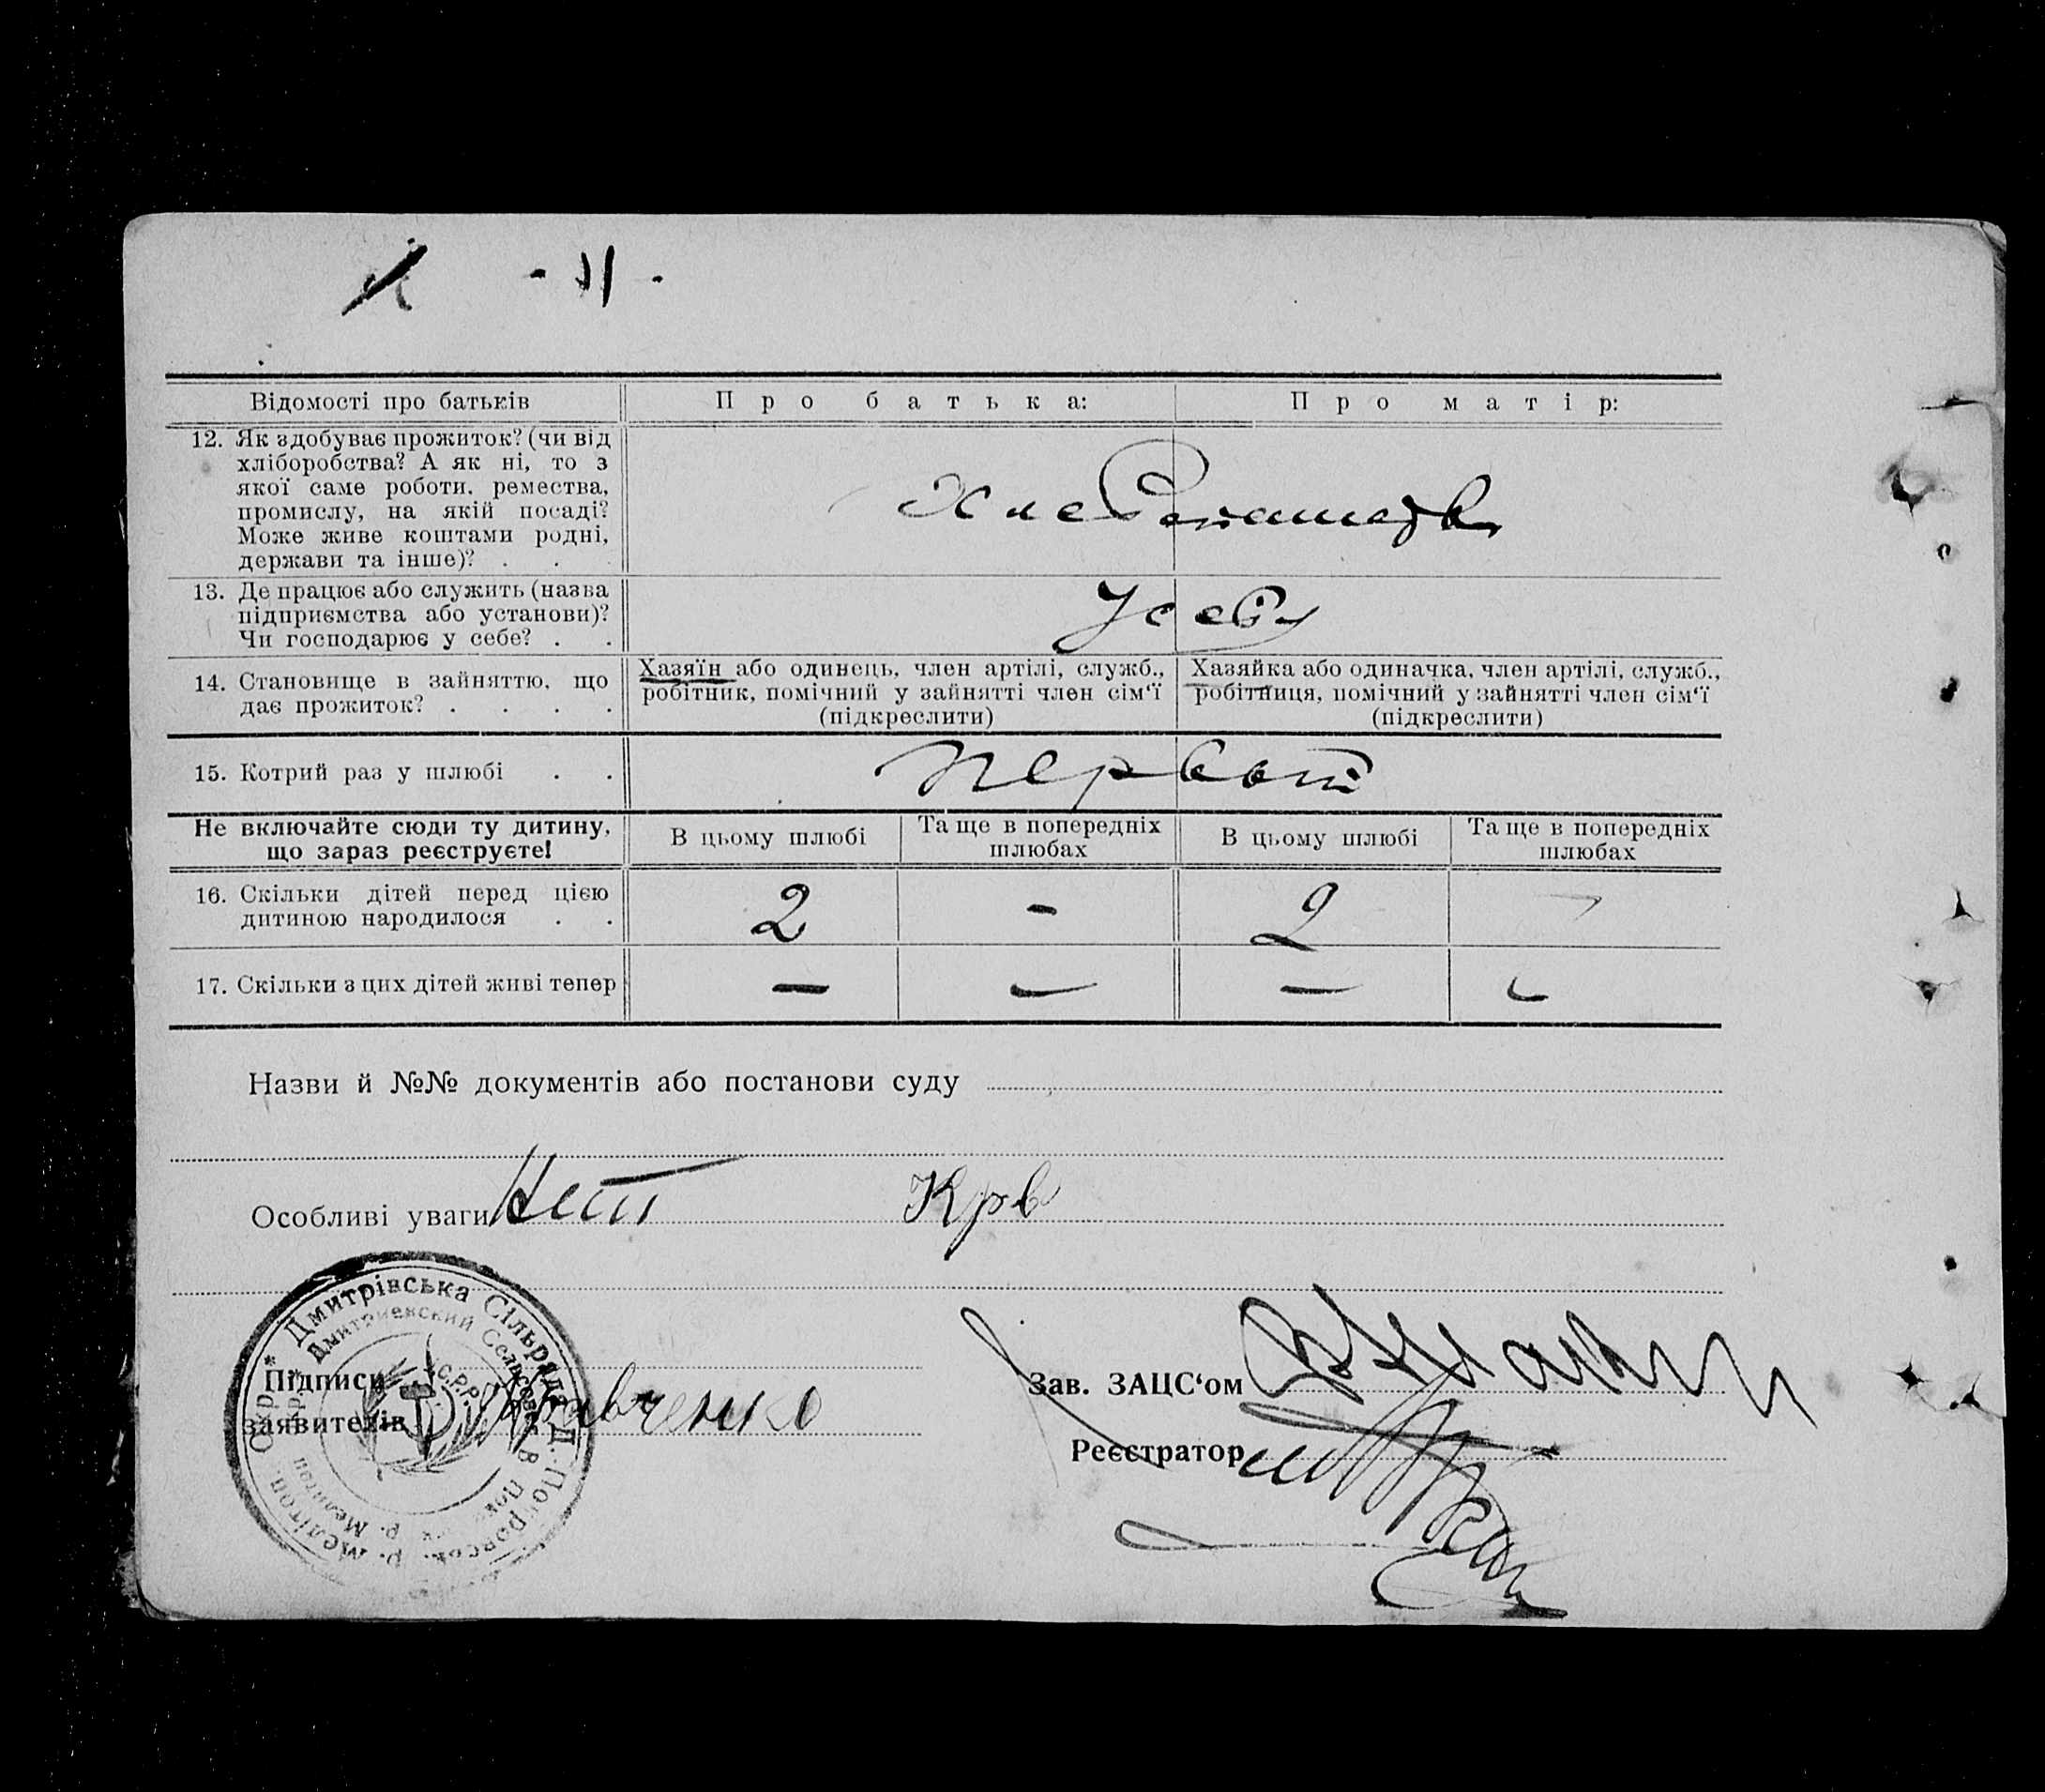 - 11 -
Відомості про батьків
Про батька:
Про матір:
12. Як здобуває прожиток? (чи від
хліборобства? А як ні, то з
якої саме роботи. ремества,
промислу, на якій посаді?
Може живе коштами родні,
держави та інше)? . .
Хлебопашество
13. Де працює або служить (назва
підприємства або установи)?
Чи господарює у себе? . .
У себя
14. Становище в зайняттю, що
дає прожиток? . . . .
Хазяїн або одинець, член артілі, служб.,
робітник, помічний у зайнятті член сім'ї
(підкреслити)
Хазяйка або одиначка, член артілі, служб.,
робітниця, помічний у зайнятті член сім'ї
(підкреслити)
15. Котрий раз у шлюбі . .
первый
Не включайте сюди ту дитину,
що зараз реєструєте!
В цьому шлюбі
Та ще в попередніх
шлюбах
В цьому шлюбі
Та ще в попередніх
шлюбах
16. Скільки дітей перед цією
дитиною народилося . .
2 - 2 -
17. Скільки з цих дітей живі тепер
- - - -
Назви й №№ документів або постанови суду
Особливі уваги Нет Крв
Дмитрівська Сільрада
Дмитриевский Сельсовет
Підписи
заявителів
Кравченко
Зав. ЗАЦС‘ом
Реєстратор